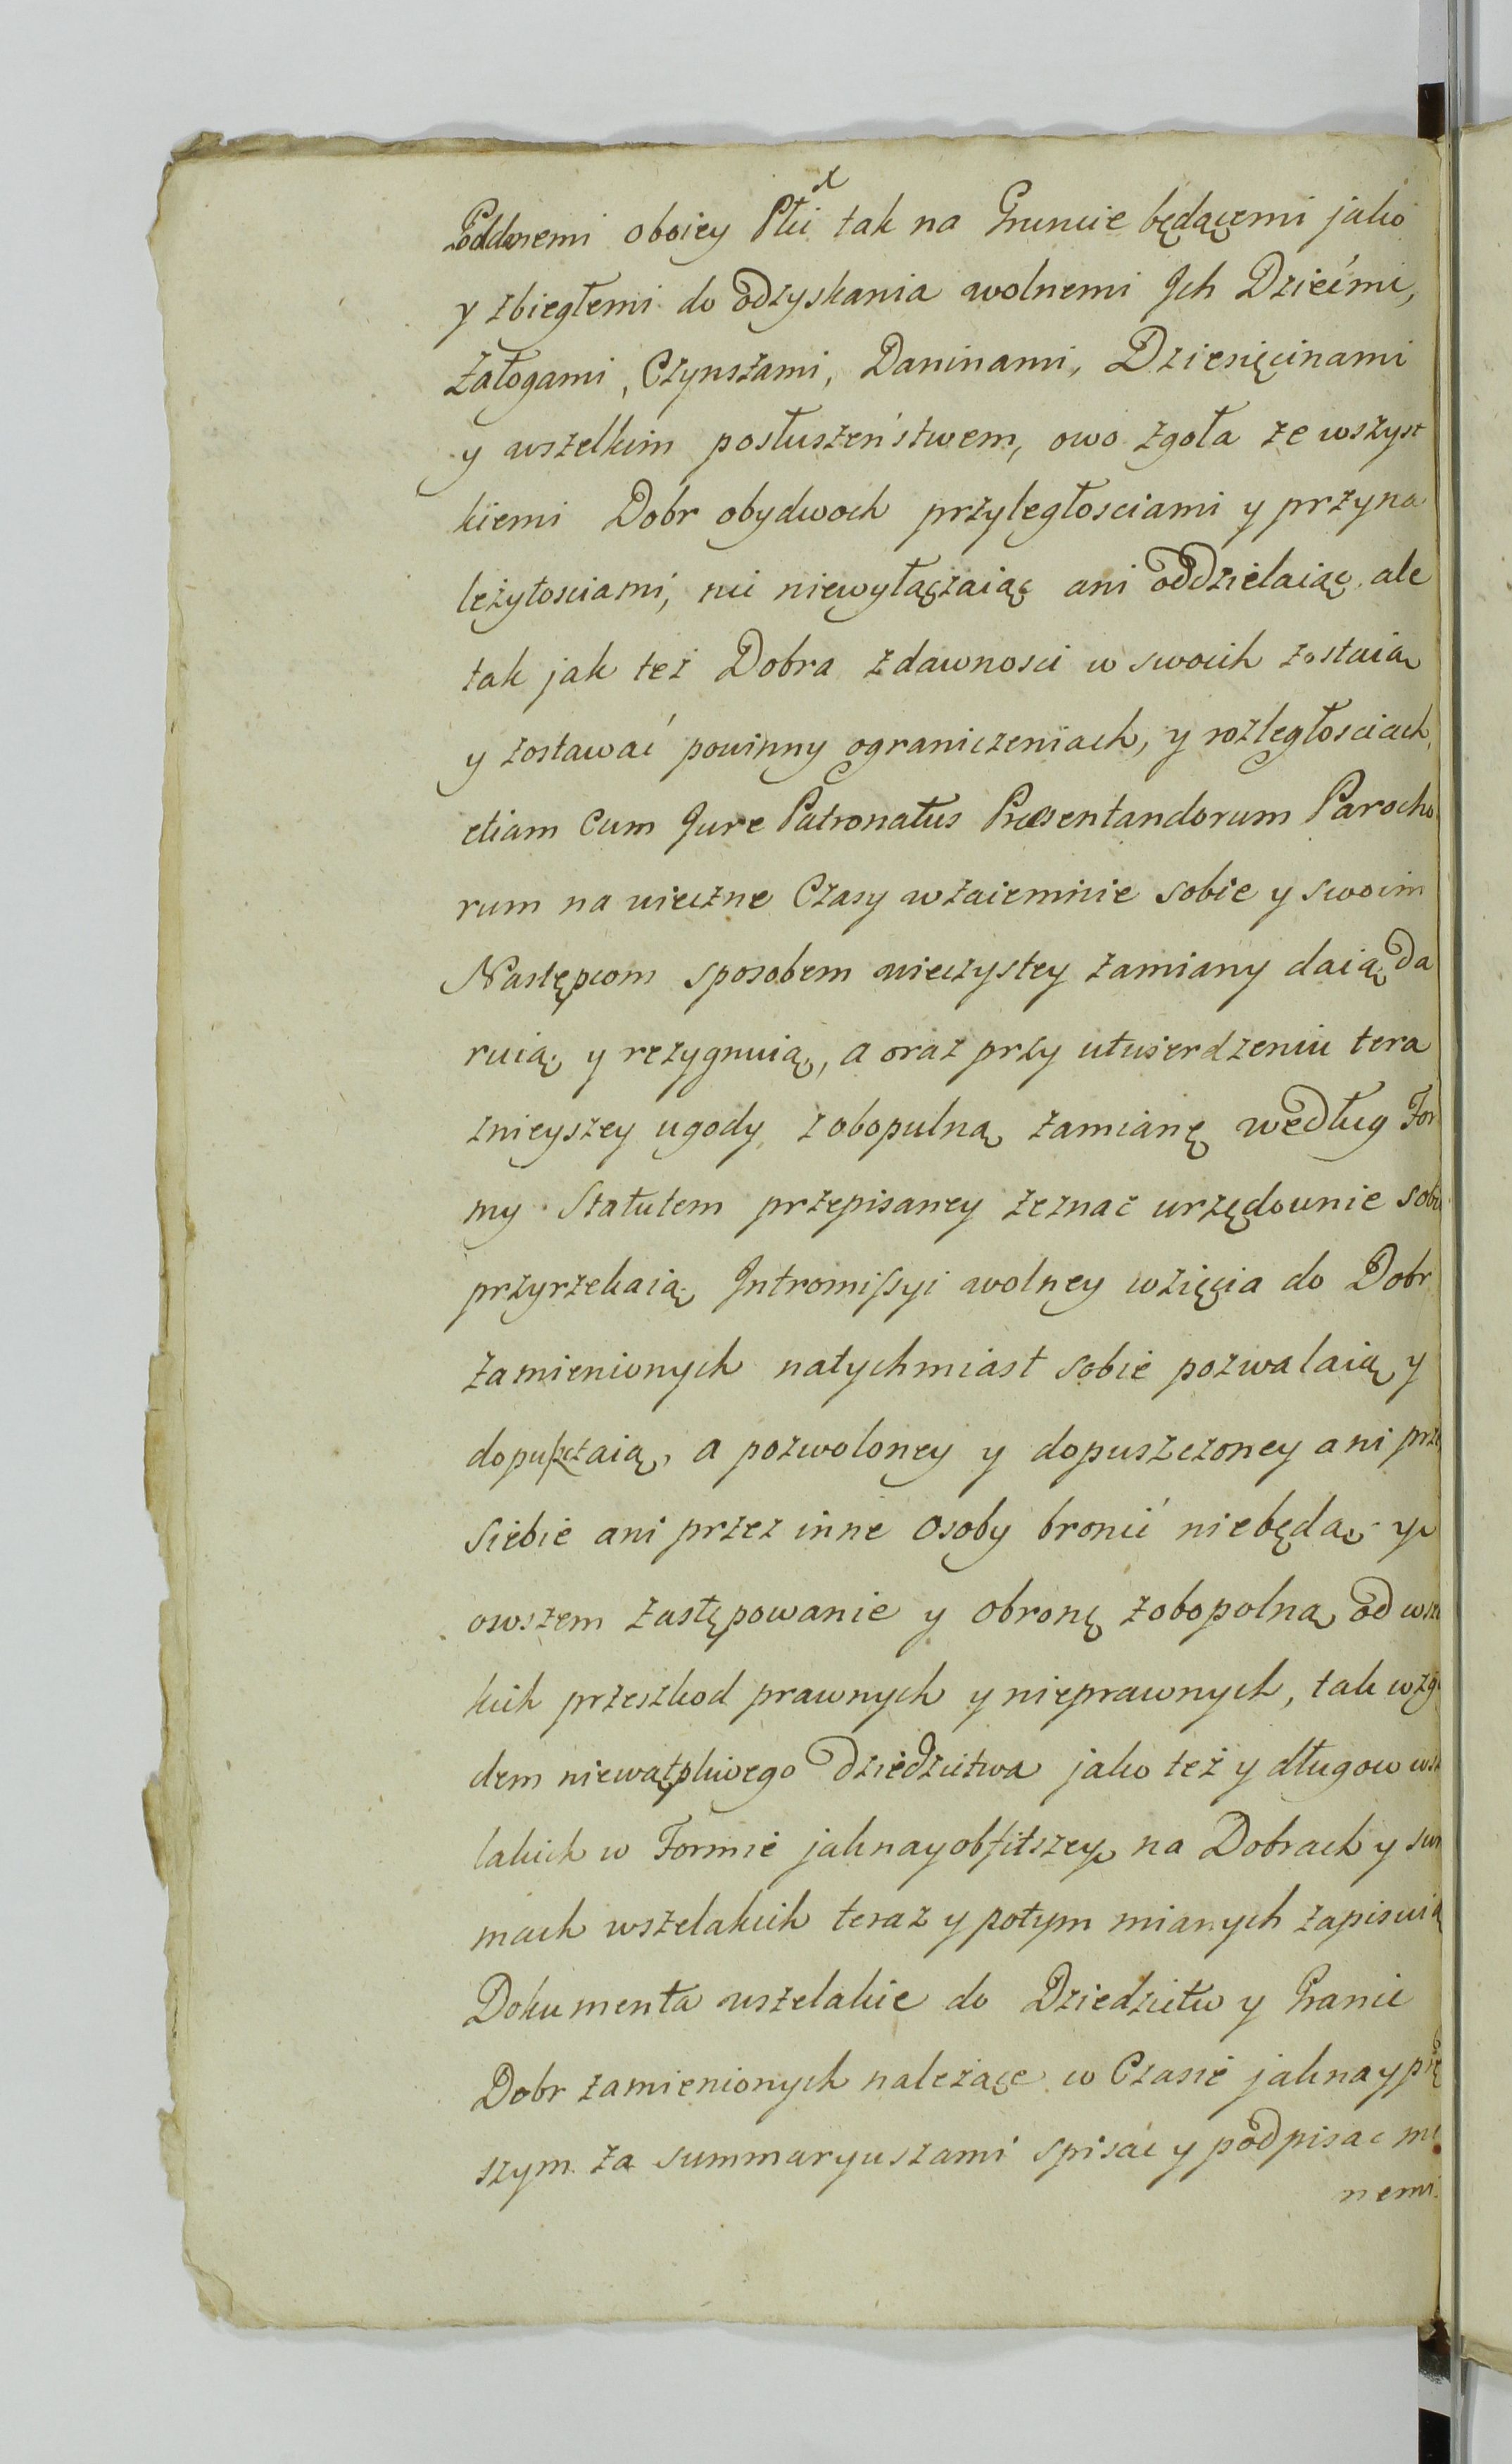 x
Poddanemi oboiey Płci tak na Gruncie będącemi jako
y zbiegłemi do odzyskania wolnemi Ich Dziećmi,
Załogami, Czynszami, Daninami, Dziesięcinami
y wszelkim posłuszeństwem, owo zgoła ze wszyst
kiemi Dobr obydwoch przyległosciami y przyna
leżytosciami, nic niewyłączaiąc ani oddzielaiąc ale
tak jak też Dobra zdawnosci w swoich zostaią
y zostawać powinny ograniczeniach, y rozległosciach,
etiam cum Jure Patronatus Præsentandorum Parocho
rum na wieczne Czasy wzaiemnie sobie y swoim
Następcom sposobem wieczystey zamiany daią da
ruią y rezygnuią, a oraz przy utwierdzeniu tera
znieyszey ugody zobopulną zamianę według For
my Statutem przepisaney zeznać urzędownie sobie
przyrzekaią Intromissyi wolney wzięcia do Dobr
zamienionych natychmiast sobie pozwalaią y
dopuszczaią, a pozwoloney y dopuszczoney ani prze
siebie ani przez inne osoby bronić niebędą y
owszem zastępowanie y obronę zobopolną od wsze
kich przeszkod prawnych y nieprawnych, tak wzglę
dem niewątpliwego dziedzictwa jako też y długow wsze
lakich w Formie jaknayobfitszey na Dobrach y sum
mach wszelakich teraz y potym mianych zapisuią
Dokumenta wszelakie do Dziedzictw y Granic
Dobr zamienionych należące w Czasie jaknayprę
szym za summaryuszami spisać y podpisać
nemi